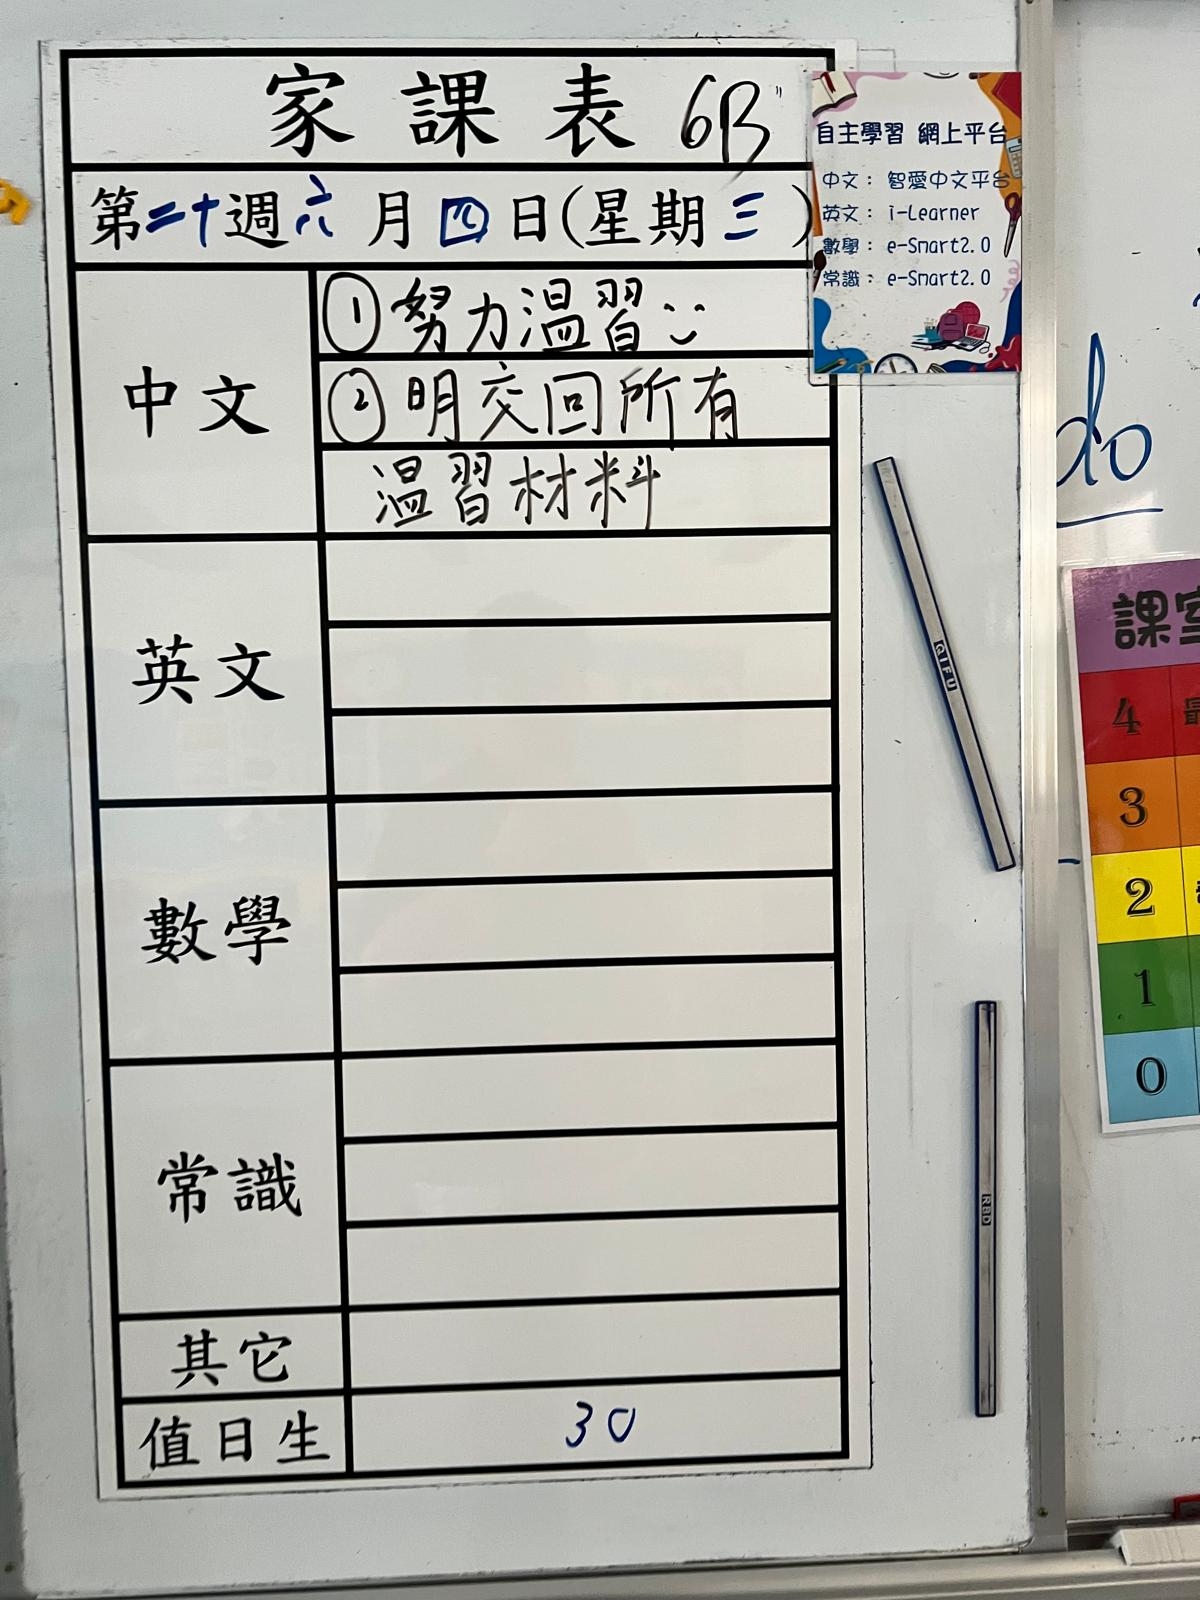 家課表 6B
第二十週六月四日(星期三)
中文
①努力溫習
②明交回所有
溫習材料
英文
數學
常識
其它
值日生 30
自主學習 網上平台
中文：智愛中文平台
英文：i-Learner
數學：e-Smart2.0
常識：e-Smart2.0
QIFU
do
課室
4
3
2
1
0